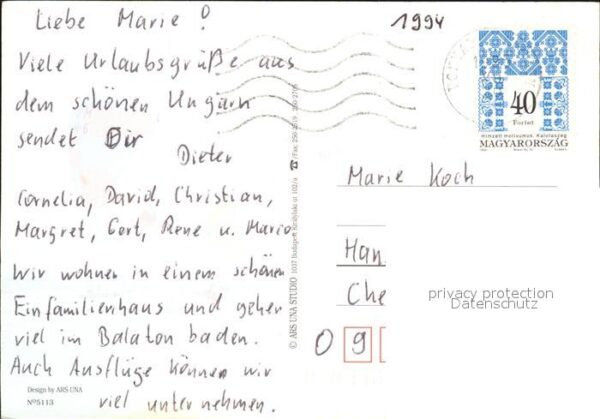 Liebe Marie !
Viele Urlaubsgrüße aus
dem schönen Ungarn
sendet Dir
Dieter
Cornelia, David, Christian,
Margret, Gert, Rene u. Mario
Wir wohnen in einem schönen
Einfamilienhaus und gehen
viel im Balaton baden.
Auch Ausflüge können wir
viel unternehmen.
Design by ARS UNA
No5113
© ARS UNA STUDIO 1037 Budapest Királylaki út 102/a
1994
40
Forint
Nemzeti motívumok. Kalotaszeg
MAGYARORSZÁG
Marie Koch
Han
Che
privacy protection
Datenschutz
0 9